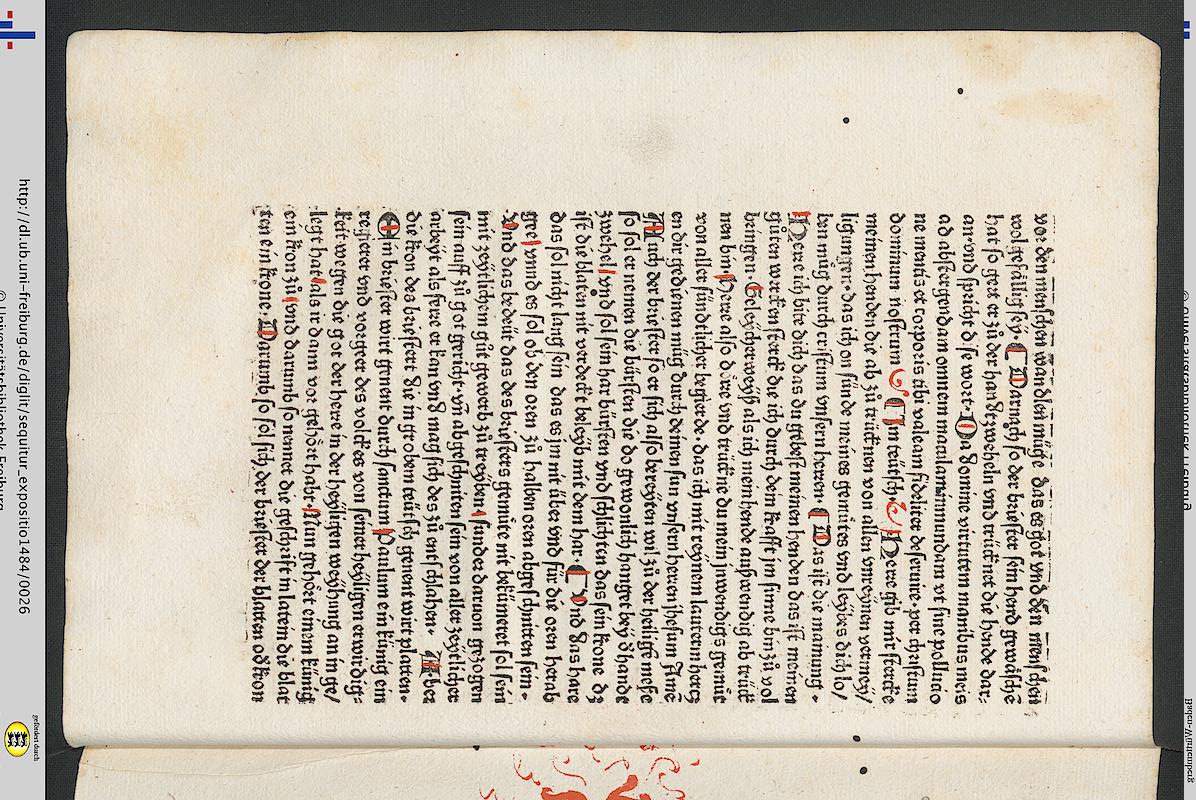 vor den menschen wandlen müge das es got vnd den menschen
wolgefällig sey. Darnach so der briester sein hend gewäschē
hat so geet er zů der handtzweheln vnd trücknet die hende dar-
an vnd spricht dise wort. Da domine virtutem manibus meis
ad abstergendam omnem maculam immundam vt sine pollucio
ne mentis et corporis tibi valeam fideliter deseruire. per christum
dominum nostrum Im teütsch. Herre gib mir stercke
meinen henden die ab zů trücknen von allen vnreynen vermey/
ligungen. das ich on sünde meines gemütes vnd leybes dich lo/
ben müg durch cristum vnsern herren. Das ist die mainung.
Herre ich bite dich das du gebest meinen henden das ist meinen
güten wercken sterck die ich durch dein krafft jm sinne bin zů vol
beingen. Geleycherweyß als ich mein hende außwendig ab trück
nen bin. Herre also dore vnd trückne du mein jnwendigs gemüt
von aller sündtlicher begierde. das ich mit reynem lauterem hertz
en dir gedienen müg durch deinen sun vnsern herren jhesum Amē
Auch der briester so er sich also bereyten wil zů der heilige messe
so sol er nemen die bürsten die do gewonlich hanget bey d' hande
zwehel vnd sol sein har bürsten vnd schlichten das sein krone dz
ist die blaten nit verdeckt beleyb mit dem har. Vnd das hare
das sol nicht lang sein das es jm nit über vnd für die oren herab
gee vnnd es sol ob den oren zů halben oren abgeschnitten sein.
Vnd das bedeüt das des briesters gemüte nit bekümeret sol sein
mit zeytlichem gůt gewerb zů treyben sunder daruon gezogen
sein auff zů got gericht. vn̄ abgeschniten sein von aller zeytlicher
arbeyt als ferre er kan vnd mag sich des zů entschlahen. Aber
die kron des briesters die in groben teütsch genent wirt platten.
Ein briester wirt genent durch sanctum Paulum ein künig ein
regierer vnd vorgeer des volckes von seiner heyligen erwirdig-
keit wegen die got der herre in der heyligen weyhung an in ge/
legt hat als ir dann vor gehört habt. Nun gehört einem künig
ein kron zů vnd darumb so nennet die geschrift in latein die blat
ten ein krone. Darumb so sol sich der briester der blatten od' kron
http://dl.ub.uni-freiburg.de/diglit/sequitur_expositio1484/0026
© Universitätsbibliothek Freiburg
gefördert durch